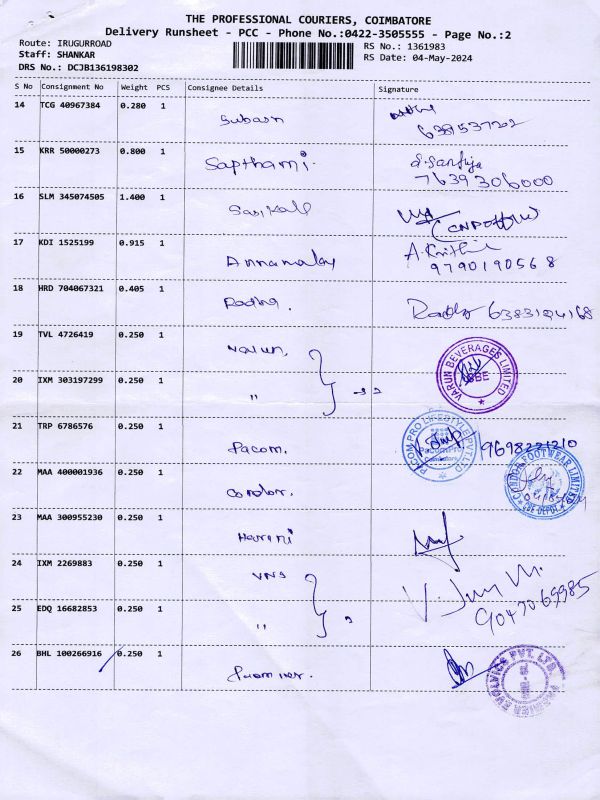 THE PROFESSIONAL COURIERS, COIMBATORE
Delivery Runsheet - PCC - Phone No.:0422-3505555 - Page No.:2
Route: IRUGURROAD
RS No.: 1361983
Staff: SHANKAR
RS Date: 04-May-2024
DRS No.: DCJB136198302
S No Consignment No Weight PCS Consignee Details Signature
14 TCG 40967384 0.280 1 Subasn
15 KRR 50000273 0.800 1 Sapthami.
7639306000
16 SLM 345074505 1.400 1
17 KDI 1525199 0.915 1 Annamalay
9790190568
18 HRD 704067321 0.405 1 Radha.
19 TVL 4726419 0.250 1 Varun.
VARUN BEVERAGES LIMITED
CBE
20 IXM 303197299 0.250 1 "
21 TRP 6786576 0.250 1 Pacom.
PACOM PRO LIFESTYLE PVT LTD
PacomPro
Coimbatore
9698221210
22 MAA 400001936 0.250 1 Condor.
CONDOR FOOTWEAR LIMITED
CBE DEPOT
23 MAA 300955230 0.250 1 Harini
24 IXM 2269883 0.250 1 VNS
9047069985
25 EDQ 16682853 0.250 1 "
26 BHL 100266916 0.250 1
PVT. LTD.